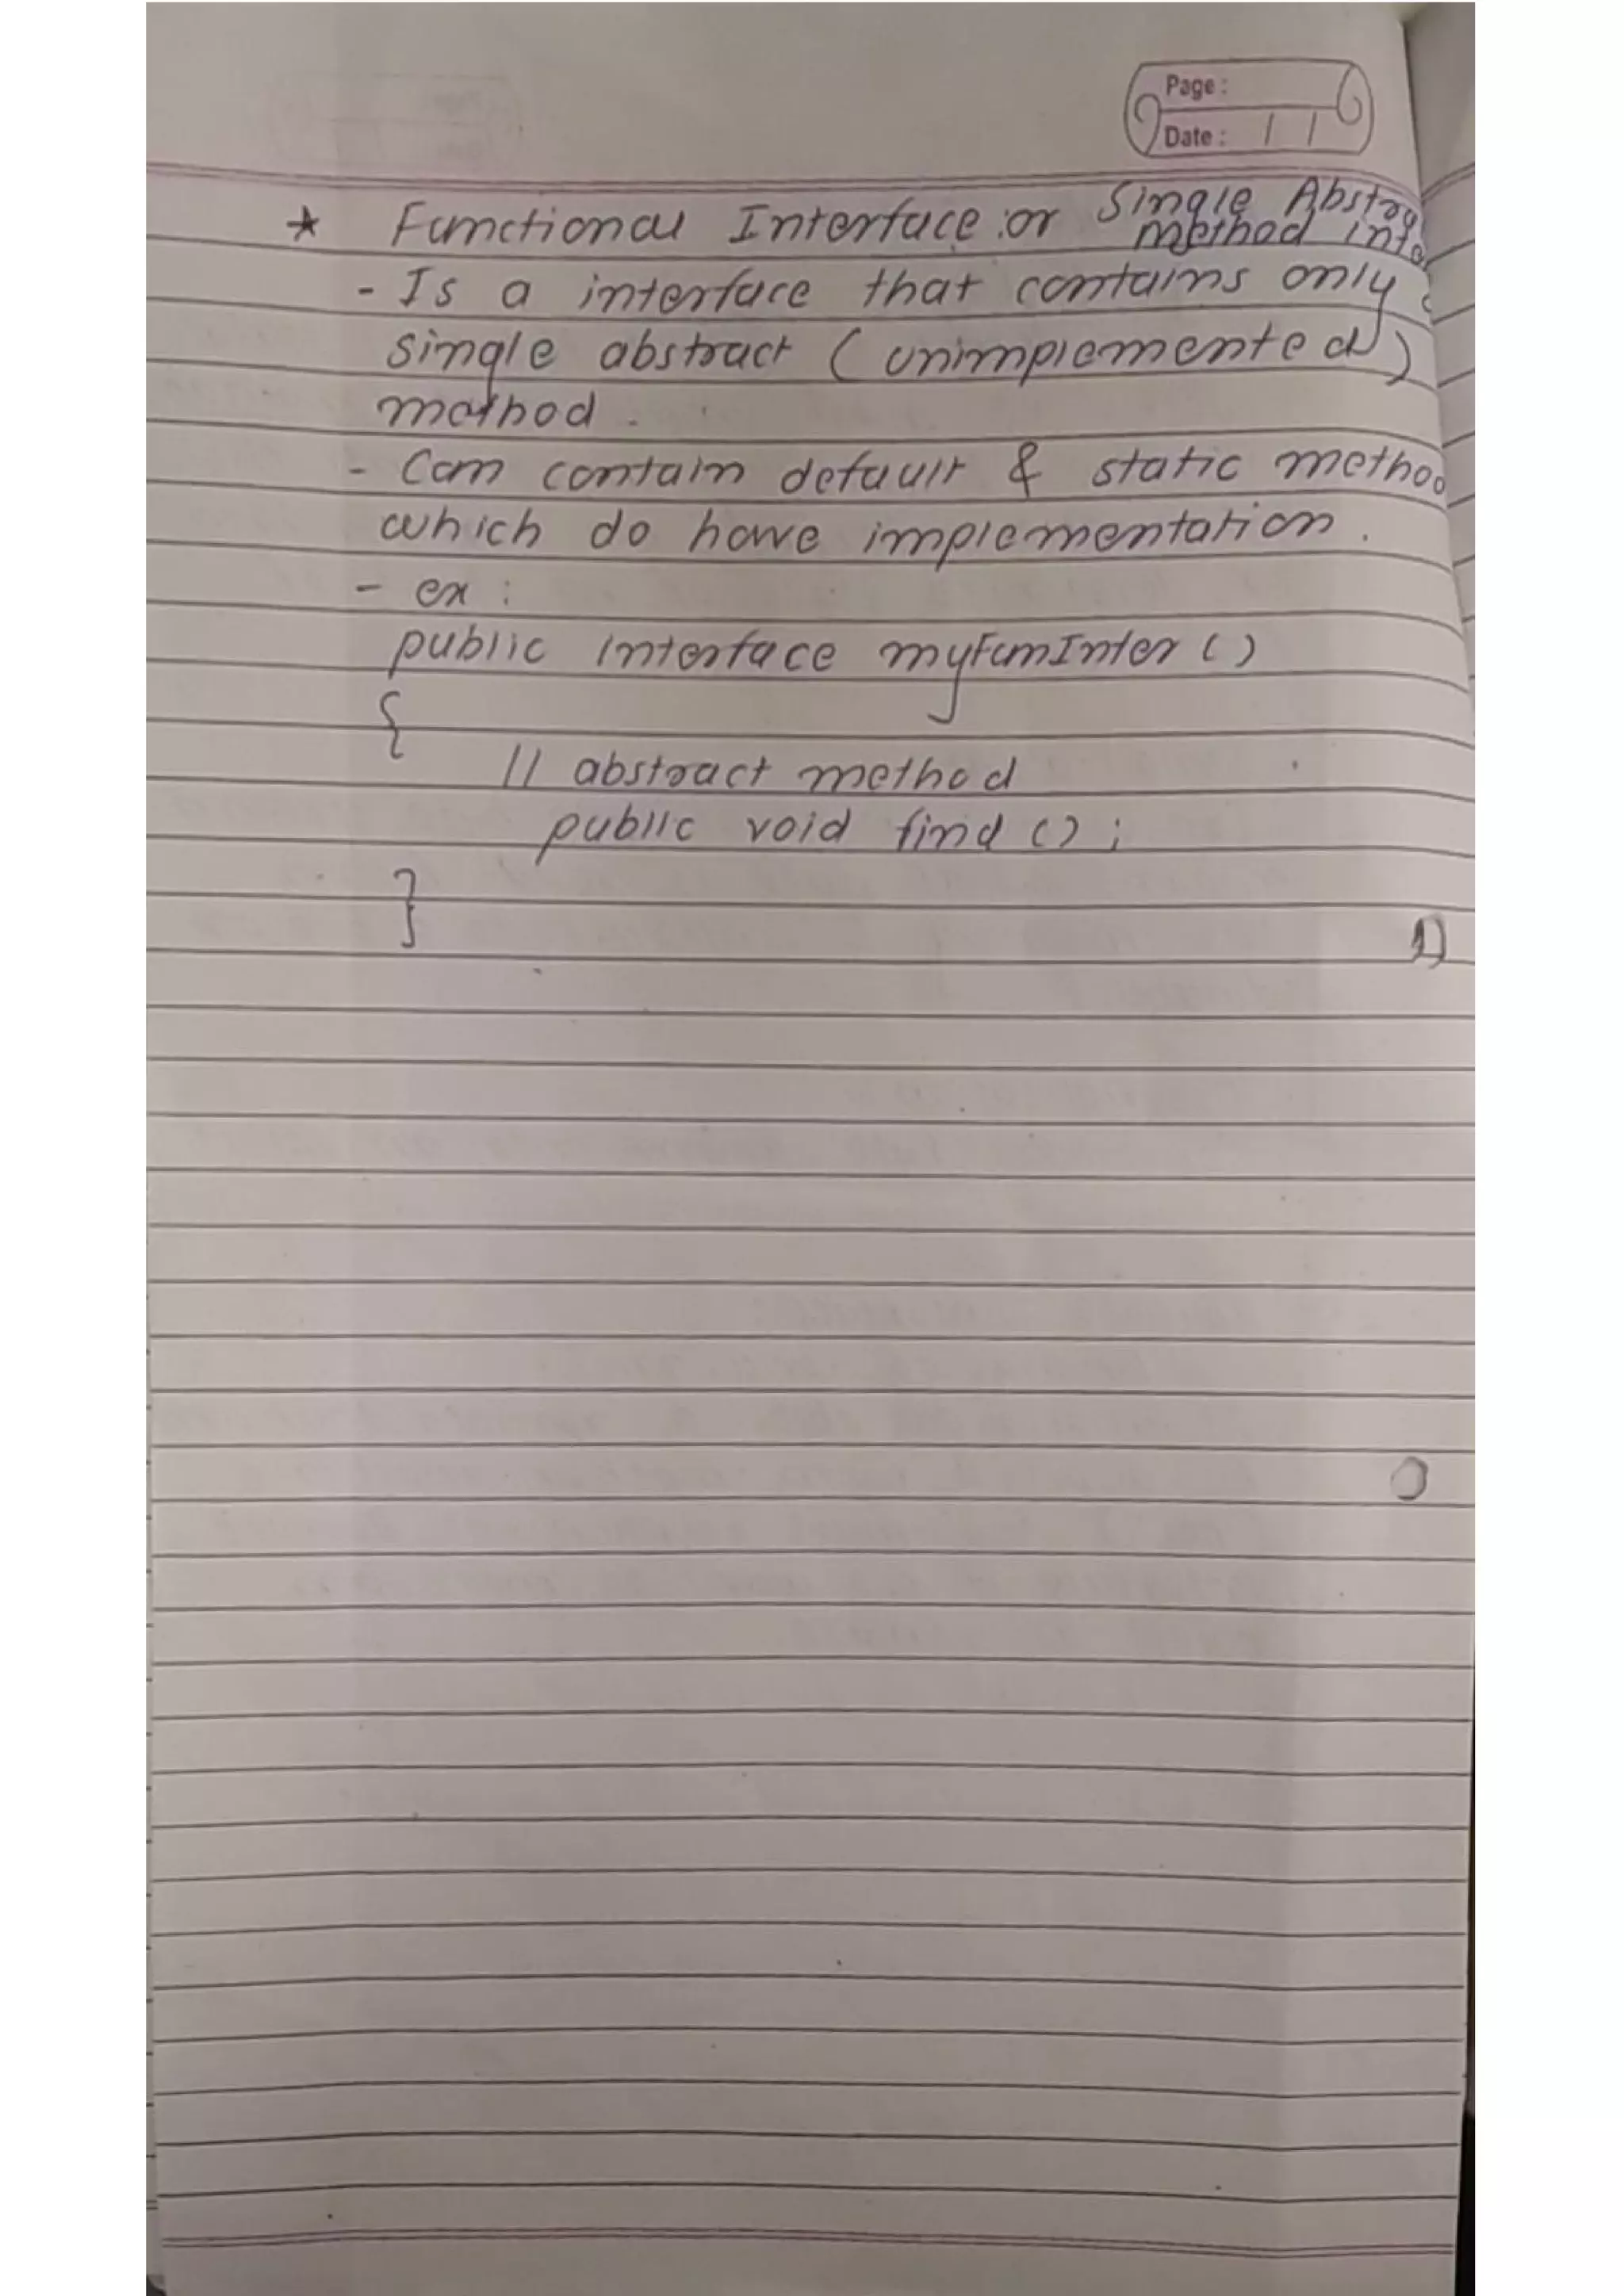 Page :
Date : / /
* Functional Interface : or Single Abstra
method inte
- Is a interface that contains only
single abstract ( unimplemented )
method .
- Can contain default & static metho
which do have implementation .
- ex :
public interface myFunInter ( )
{
// abstract method
public void find ( ) ;
}
1)